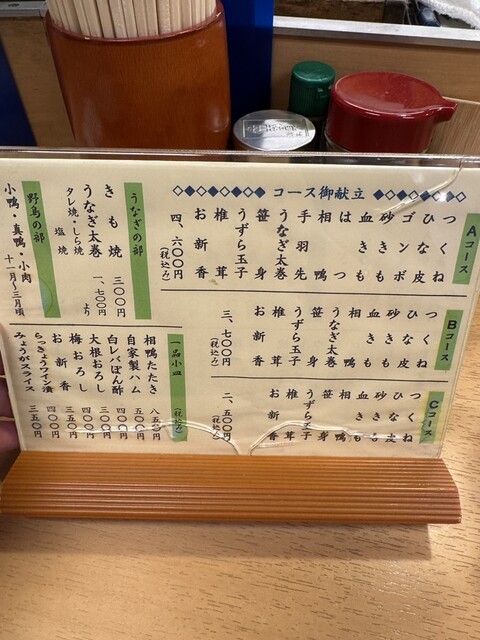 コース御献立
Aコース
つくね
ひな皮
ゴンボ
砂きも
血きも
はつ
相鴨
手羽先
うなぎ太巻
笹身
うずら玉子
椎茸
お新香
四、六〇〇円
(税込み)
Bコース
つくね
ひな皮
砂きも
血きも
相鴨
うなぎ太巻
笹身
うずら玉子
椎茸
お新香
三、七〇〇円
(税込み)
Cコース
つくね
ひな皮
砂きも
血きも
相鴨
笹身
うずら玉子
椎茸
お新香
二、五〇〇円
(税込み)
うなぎの部
きも焼 三〇〇円
うなぎ太巻 一、七〇〇円より
タレ焼・しら焼
塩焼
野鳥の部
小鴨・真鴨・小肉
十一月~三月頃
一品小皿 (税込み)
相鴨たたき 八五〇円
自家製ハム 五〇〇円
白レバぽん酢 四〇〇円
大根おろし 三〇〇円
梅おろし 四〇〇円
お新香 四五〇円
らっきょうワイン漬 四〇〇円
みょうがスライス 三五〇円